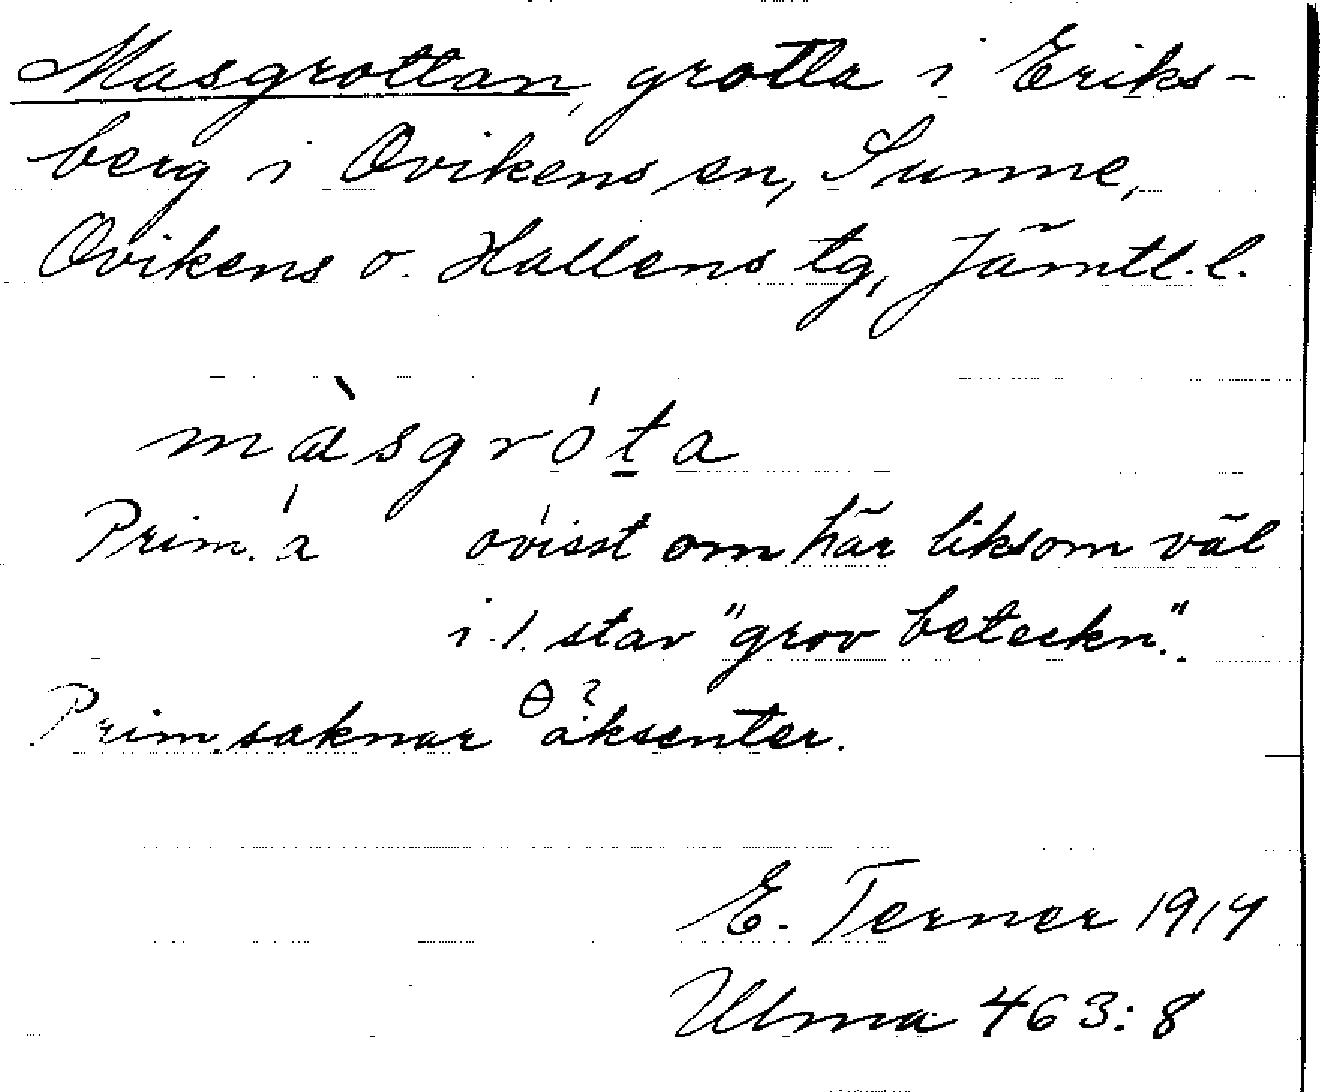 Masgrottan, grotta i Eriks-
berg i Ovikens sn, Sunne,
Ovikens o. Hallens tg, Jämtl. l.
màsgróta
Prim. á ovisst om här liksom väl
i 1. stav "grov beteckn.".
Prim. saknar aksenter.
E. Terner 1914
Ulma 463:8